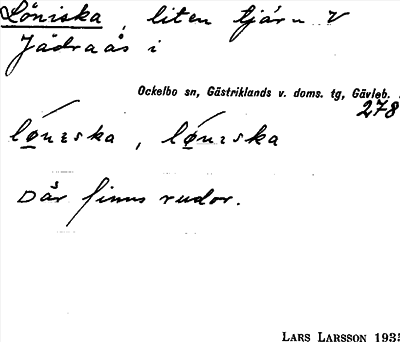 Löniska, liten tjärn V
Jädraås i
Ockelbo sn, Gästriklands v. doms. tg, Gävleb.
278
Där finns rudor.
LARS LARSSON 1935